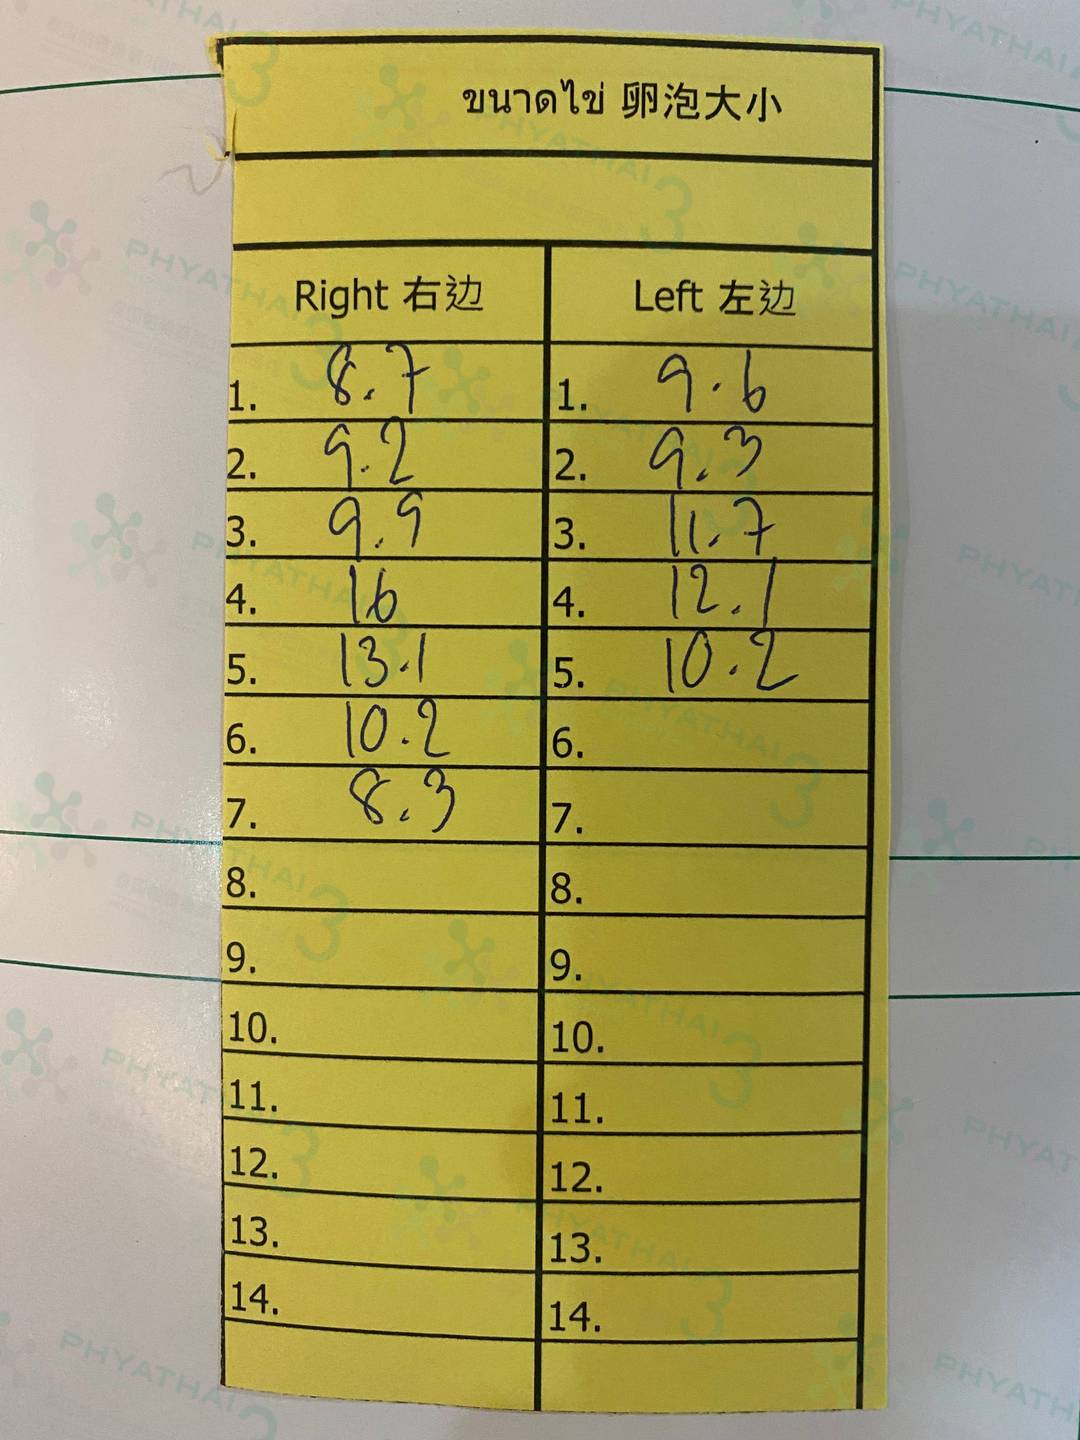 ขนาดไข่ 卵泡大小
Right 右边 Left 左边
1. 8.7 1. 9.6
2. 9.2 2. 9.3
3. 9.9 3. 11.7
4. 16 4. 12.1
5. 13.1 5. 10.2
6. 10.2 6.
7. 8.3 7.
8. 8.
9. 9.
10. 10.
11. 11.
12. 12.
13. 13.
14. 14.
PHYATHAI 3